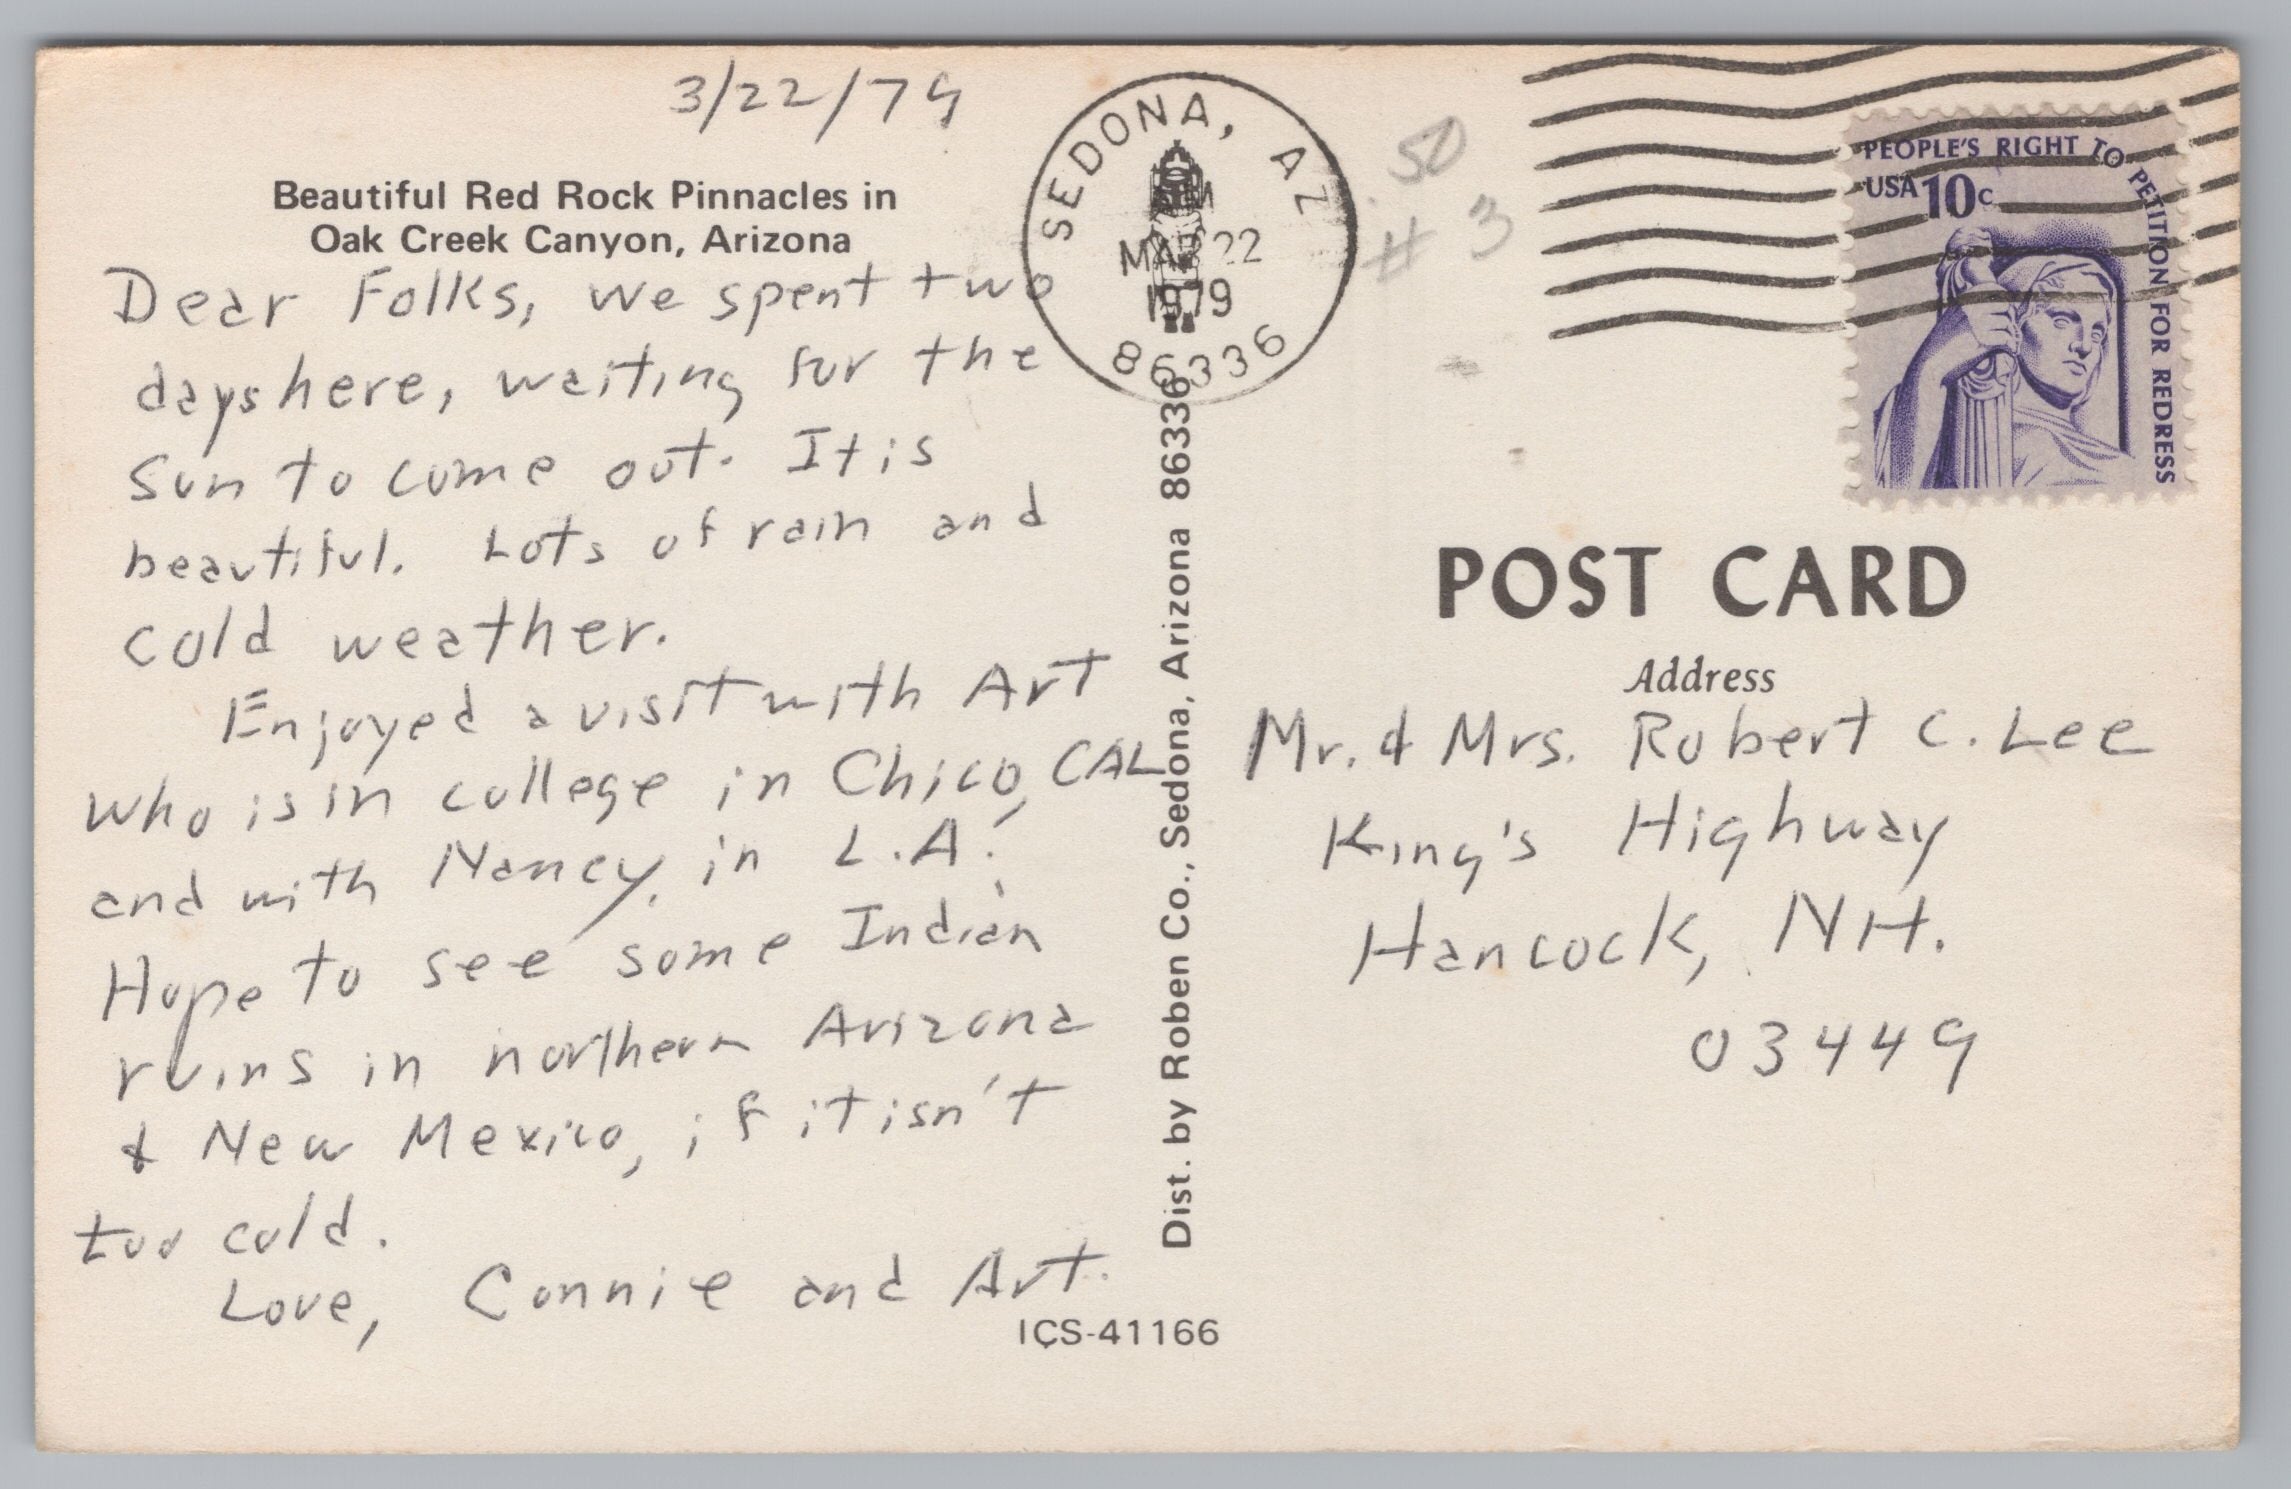 3/22/79
Beautiful Red Rock Pinnacles in
Oak Creek Canyon, Arizona
Dear Folks, we spent two
days here, waiting for the
sun to come out. It is
beautiful. Lots of rain and
cold weather.
Enjoyed a visit with Art
who is in college in Chico, CAL
and with Nancy, in L.A.
Hope to see some Indian
ruins in northern Arizona
& New Mexico, if it isn't
too cold.
Love, Connie and Art.
ICS-41166
Dist. by Roben Co., Sedona, Arizona 86336
SEDONA, AZ
MAR 22
1979
86336
50
# 3
PEOPLE'S RIGHT TO PETITION FOR REDRESS
USA 10c
POST CARD
Address
Mr. & Mrs. Robert C. Lee
King's Highway
Hancock, NH.
03449